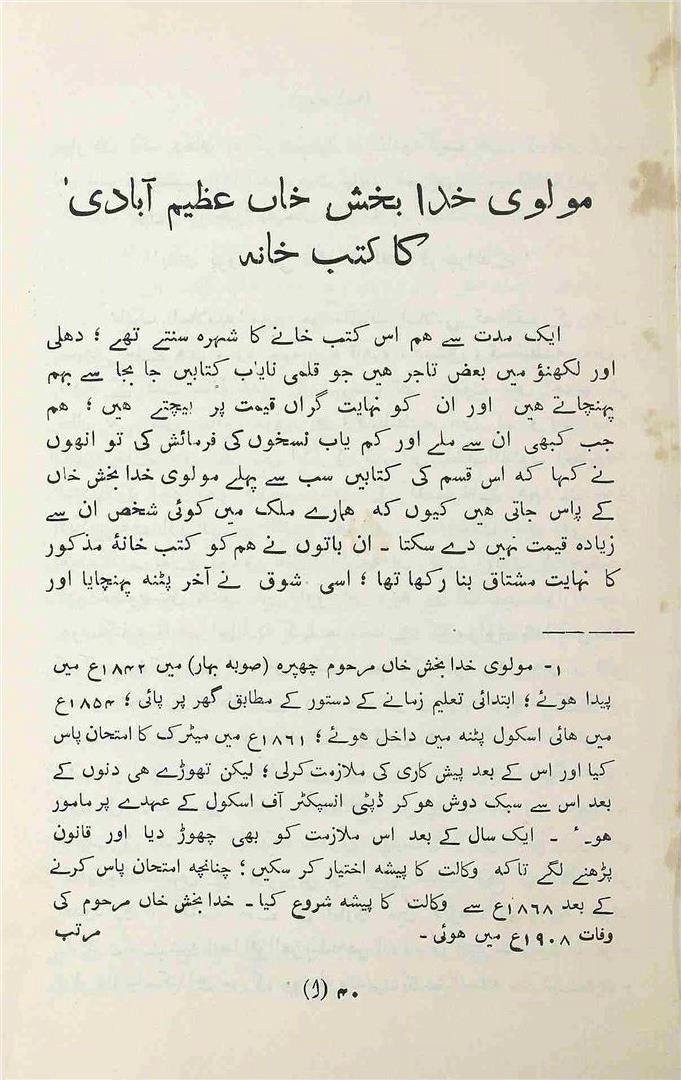 مولوی خدا بخش خاں عظیم آبادی'
کا کتب خانہ
ایک مدت سے ھم اس کتب خانے کا شہرہ سنتے تھے ؛ دھلی
اور لکھنؤ میں بعض تاجر ھیں جو قلمی نایاب کتابیں جا بجا سے بہم
پہنچاتے ھیں اور ان کو نہایت گراں قیمت پر بیچتے ھیں ؛ ھم
جب کبھی ان سے ملے اور کم یاب نسخوں کی فرمائش کی تو انھوں
نے کہا کہ اس قسم کی کتابیں سب سے پہلے مولوی خدا بخش خاں
کے پاس جاتی ھیں کیوں کہ ھمارے ملک میں کوئی شخص ان سے
زیادہ قیمت نہیں دے سکتا ۔ ان باتوں نے ھم کو کتب خانۂ مذکور
کا نہایت مشتاق بنا رکھا تھا ؛ اسی شوق نے آخر پٹنہ پہنچایا اور
۱- مولوی خدا بخش خاں مرحوم چھپرہ (صوبہ بہار) میں ۱۸۴۲ع میں
پیدا ھوئے ؛ ابتدائی تعلیم زمانے کے دستور کے مطابق گھر پر پائی ؛ ۱۸۵۴ع
میں ھائی اسکول پٹنہ میں داخل ھوئے ؛ ۱۸۶۱ع میں میٹرک کا امتحان پاس
کیا اور اس کے بعد پیش کاری کی ملازمت کرلی ؛ لیکن تھوڑے ھی دنوں کے
بعد اس سے سبک دوش ھوکر ڈپٹی انسپکٹر آف اسکول کے عہدے پر مامور
ھوئے ۔ ایک سال کے بعد اس ملازمت کو بھی چھوڑ دیا اور قانون
پڑھنے لگے تاکہ وکالت کا پیشہ اختیار کر سکیں ؛ چنانچہ امتحان پاس کرنے
کے بعد ۱۸۶۸ع سے وکالت کا پیشہ شروع کیا ۔ خدا بخش خاں مرحوم کی
وفات ۱۹۰۸ع میں ھوئی ۔ مرتب
۴۰ (۱)